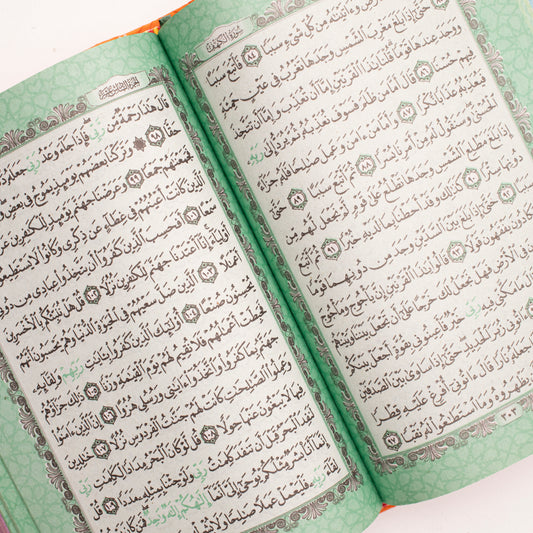 سورة الكهف
وءاتينه من كل شىء سببا ٨٤ فأتبع سببا
٨٥ حتى إذا بلغ مغرب الشمس وجدها تغرب فى عين حمئة
ووجد عندها قوما قلنا يذا القرنين إما أن تعذب وإما أن تتخذ
فيهم حسنا ٨٦ قال أما من ظلم فسوف نعذبه ثم يرد إلى ربه
فيعذبه عذابا نكرا ٨٧ وأما من ءامن وعمل صلحا فله جزاء
الحسنى وسنقول له من أمرنا يسرا ٨٨ ثم أتبع سببا ٨٩ حتى
إذا بلغ مطلع الشمس وجدها تطلع على قوم لم نجعل لهم من
دونها سترا ٩٠ كذلك وقد أحطنا بما لديه خبرا ٩١ ثم أتبع
سببا ٩٢ حتى إذا بلغ بين السدين وجد من دونهما قوما لا
يكادون يفقهون قولا ٩٣ قالوا يذا القرنين إن يأجوج ومأجوج
فى الأرض فهل نجعل لك خرجا على أن تجعل بيننا وبينهم
ما مكنى فيه ربى خير فأعينونى بقوة أجعل بينكم وبينهم
ءاتونى زبر الحديد حتى إذا ساوى بين الصدفين قال
إذا جعله نارا قال ءاتونى أفرغ عليه قطرا
يظهروه وما استطعوا له نقبا ٩٧
٣٠٣
الجزء السادس عشر
قال هذا رحمة من ربى فإذا جاء وعد ربى جعله دكاء
حقا ٩٨ وتركنا بعضهم يومئذ يموج فى بعض
فجمعنهم جمعا ٩٩ وعرضنا جهنم يومئذ للكفرين عرضا
الذين كانت أعينهم فى غطاء عن ذكرى وكانوا لا يستطيعون
سمعا ١٠١ أفحسب الذين كفروا أن يتخذوا عبادى من دونى
أولياء إنا أعتدنا جهنم للكفرين نزلا ١٠٢ قل هل ننبئكم بالأخسرين
أعملا ١٠٣ الذين ضل سعيهم فى الحيوة الدنيا وهم يحسبون أنهم
يحسنون صنعا ١٠٤ أولئك الذين كفروا بءايت ربهم ولقائه
فحبطت أعملهم فلا نقيم لهم يوم القيمة وزنا ١٠٥ ذلك جزاؤهم
جهنم بما كفروا واتخذوا ءايتى ورسلى هزوا ١٠٦ إن الذين ءامنوا
وعملوا الصلحت كانت لهم جنت الفردوس نزلا ١٠٧ خلدين
فيها لا يبغون عنها حولا ١٠٨ قل لو كان البحر مدادا لكلمت ربى
لنفد البحر قبل أن تنفد كلمت ربى ولو جئنا بمثله مددا ١٠٩ قل
إنما أنا بشر مثلكم يوحى إلى أنما إلهكم إله وحد فمن كان يرجوا
لقاء ربه فليعمل عملا صلحا ولا يشرك